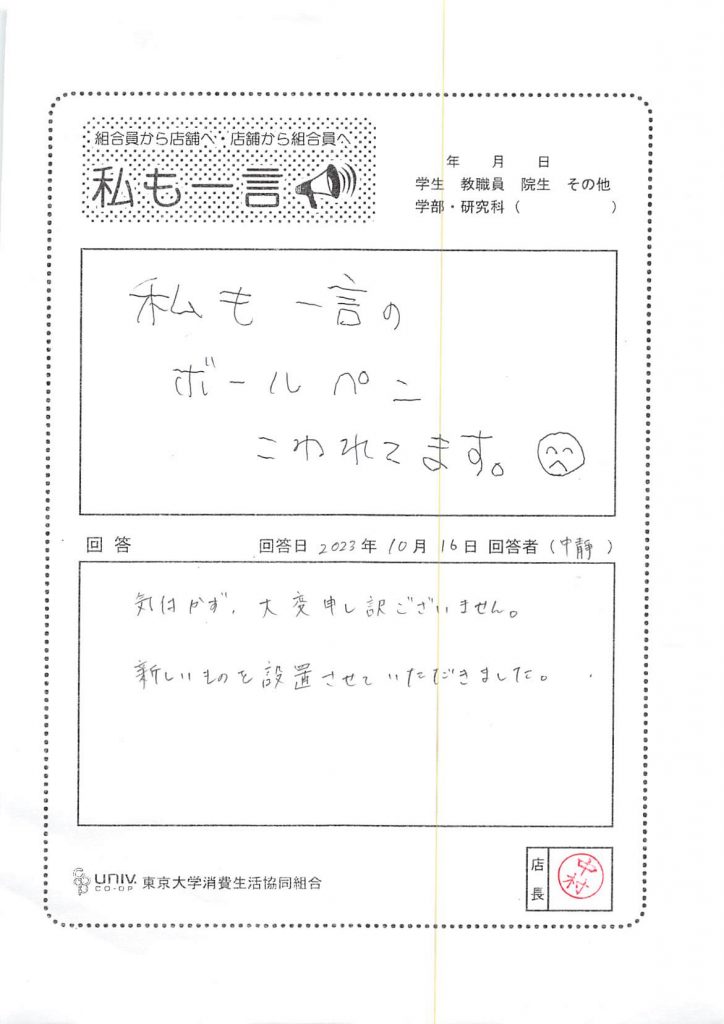 組合員から店舗へ・店舗から組合員へ
私も一言
年 月 日
学生 教職員 院生 その他
学部・研究科( )
私も一言の
ボールペン
こわれてます。
回答 回答日 2023年 10月 16日 回答者(中静)
気付かず、大変申し訳ございません。
新しいものを設置させていただきました。
UNIV. CO-OP 東京大学消費生活協同組合
店長
中村